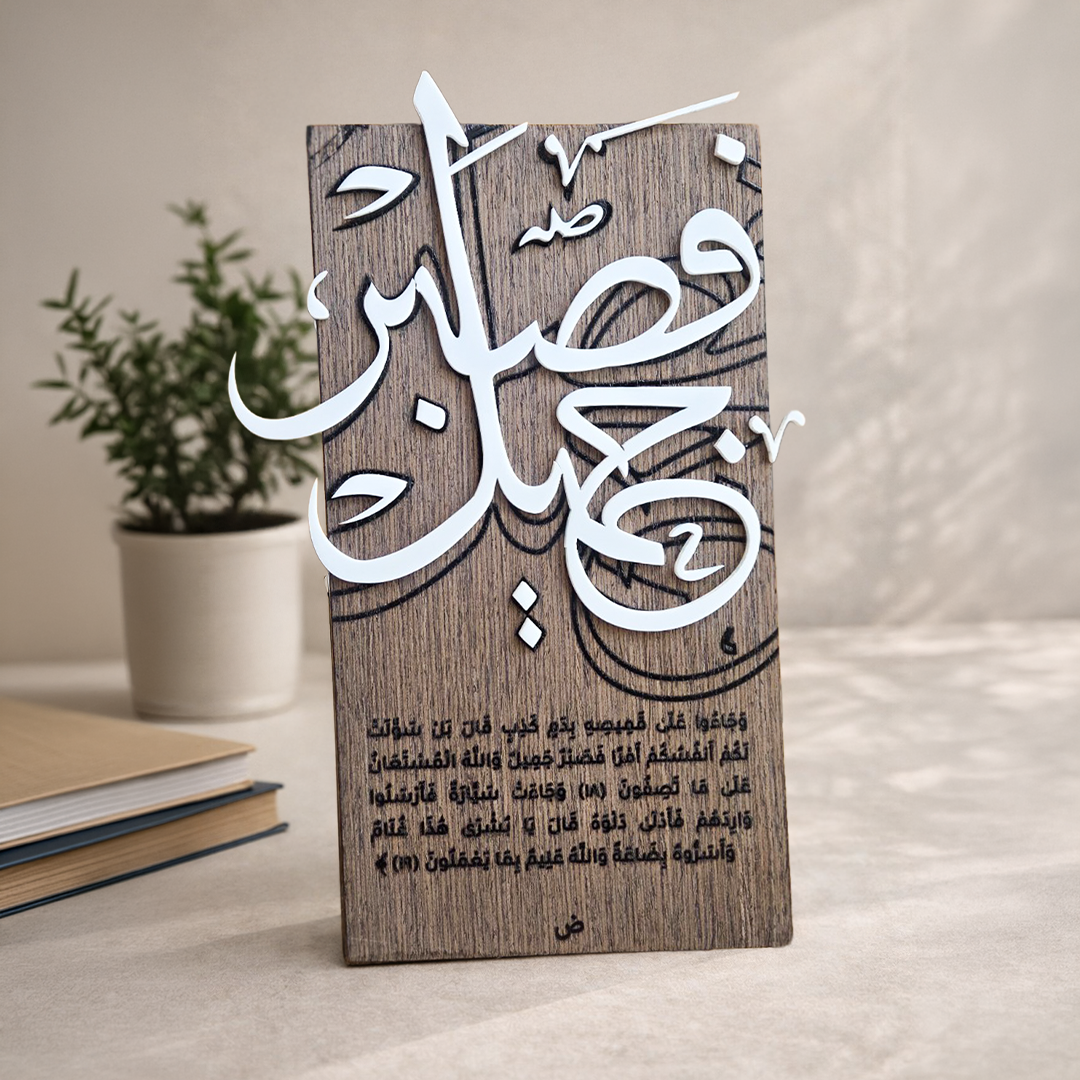 فصبر
جميل
وَجَاءُوا عَلَى قَمِيصِهِ بِدَمٍ كَذِبٍ قَالَ بَلْ سَوَّلَتْ
لَكُمْ أَنْفُسُكُمْ أَمْرًا فَصَبْرٌ جَمِيلٌ وَاللَّهُ الْمُسْتَعَانُ
عَلَى مَا تَصِفُونَ (١٨) وَجَاءَتْ سَيَّارَةٌ فَأَرْسَلُوا
وَارِدَهُمْ فَأَدْلَى دَلْوَهُ قَالَ يَا بُشْرَى هَذَا غُلَامٌ
وَأَسَرُّوهُ بِضَاعَةً وَاللَّهُ عَلِيمٌ بِمَا يَعْمَلُونَ (١٩) ﴾
ض